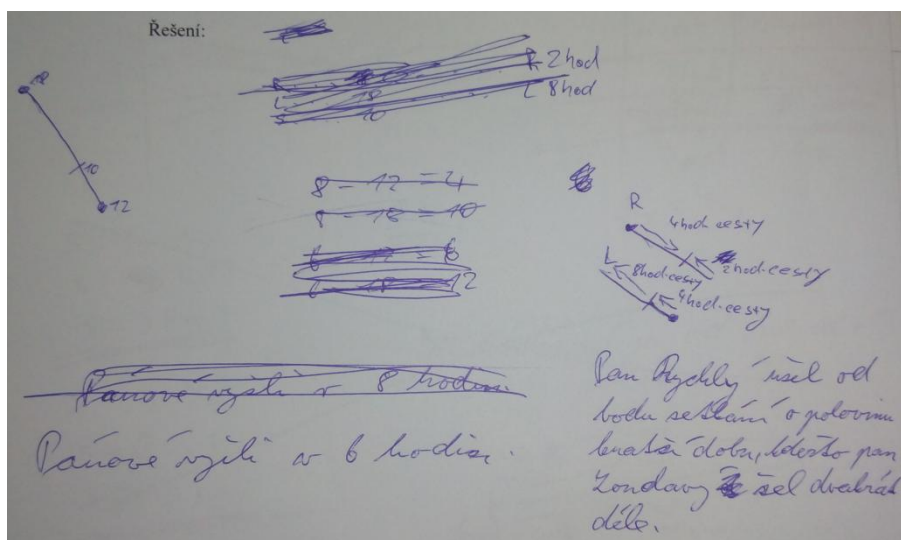 Řešení:
18
10
12
R 2hod
L 8hod
8 - 12 = 4
8 - 18 = 10
6 - 12 = 6
6 - 18 = 12
R
4hod. cesty
2hod. cesty
L
8hod. cesty
4hod. cesty
Pánové vyšli v 8 hodin.
Pánové vyšli v 6 hodin.
Pan Rychlý ušel od
bodu setkání o polovinu
kratší dobu, kdežto pan
Loudavý šel dvakrát
déle.